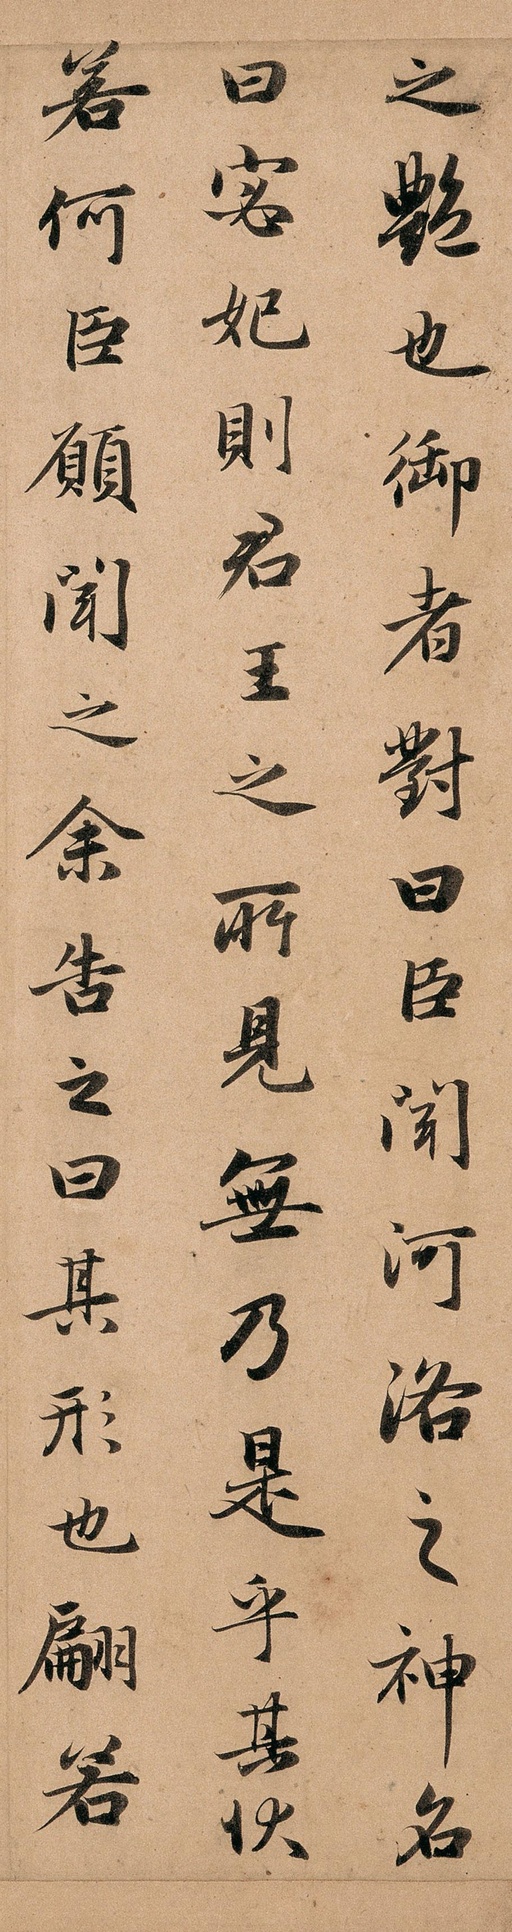 之豔也御者對曰臣聞河洛之神名
曰宓妃則君王之所見無乃是乎其狀
若何臣願聞之余告之曰其形也翩若